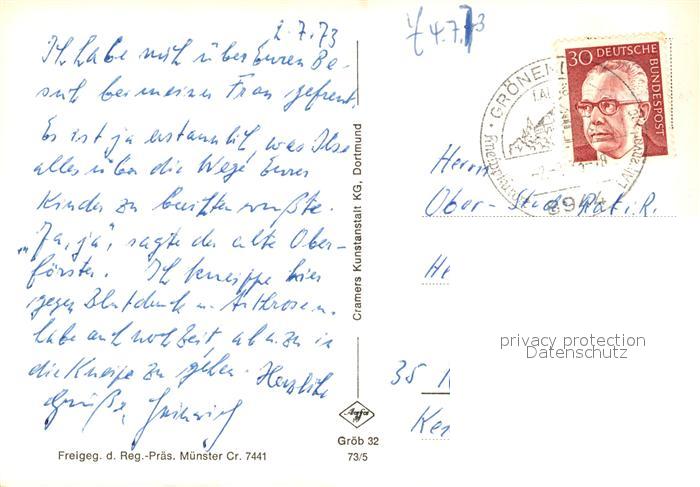 2.7.73
Ich habe mich über Euren Be-
such bei meiner Frau gefreut.
Es ist ja erstaunlich, was Ilse
alles über die Wege Eurer
Kinder zu berichten wußte.
"Ja, ja", sagte der alte Ober-
förster. Ich kneippe hier
gegen Blutdruck u. Arthrose u.
habe auch noch Zeit, ab u. zu in
die Kneipe zu gehen. Herzliche
Grüße, Heinrich
Freigeg. d. Reg.-Präs. Münster Cr. 7441
Cramers Kunstanstalt KG, Dortmund
Agfa
Gröb 32
73/5
4.7.73
30 DEUTSCHE BUNDESPOST
GRÖNEN
8944
Herrn
Ober-Stud. Rat i. R.
He
privacy protection
Datenschutz
35 K